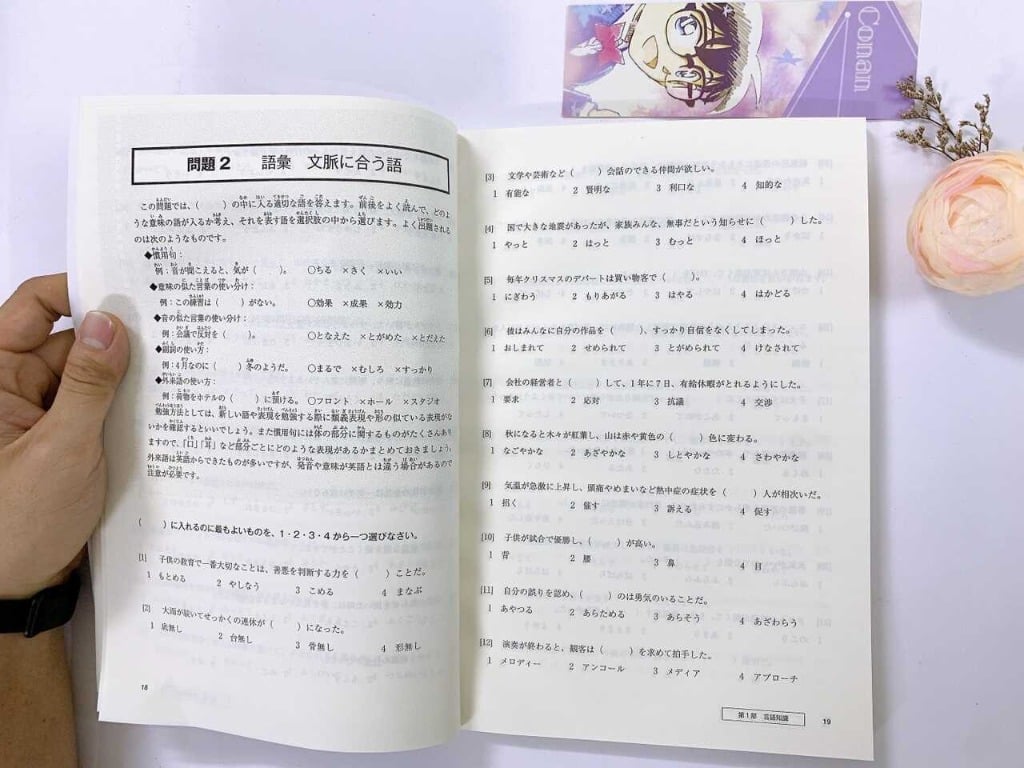 Conan
問題2 語彙 文脈に合う語
この問題では、( )の中に入る適切な語を答えます。前後をよく読んで、どのよ
うな意味の語が入るか考え、それを表す語を選択肢の中から選びます。よく出題される
のは次のようなものです。
◆慣用句:
例:音が聞こえると、気が( )。 ○ちる ×きく ×いい
◆意味の似た言葉の使い分け:
例:この練習は( )がない。 ○効果 ×成果 ×効力
◆音の似た言葉の使い分け:
例:会議で反対を( )。 ○となえた ×とがめた ×とだえた
◆副詞の使い方:
例:4月なのに( )冬のようだ。 ○まるで ×むしろ ×すっかり
◆外来語の使い方:
例:荷物をホテルの( )に預ける。 ○フロント ×ホール ×スタジオ
勉強方法としては、新しい語や表現を勉強する際に類義表現や形の似ている表現がな
いかを確認するといいでしょう。また慣用句には体の部分に関するものがたくさんあり
ますので、「口」「耳」など部分ごとにどのような表現があるかまとめておきましょう。
外来語は英語からできたものが多いですが、発音や意味が英語とは違う場合があるので
注意が必要です。
( )に入れるのに最もよいものを、1・2・3・4から一つ選びなさい。
[1] 子供の教育で一番大切なことは、善悪を判断する力を( )ことだ。
1 もとめる 2 やしなう 3 こめる 4 まなぶ
[2] 大雨が続いてせっかくの連休が( )になった。
1 底無し 2 台無し 3 骨無し 4 形無し
18
[3] 文学や芸術など( )会話のできる仲間が欲しい。
1 有能な 2 賢明な 3 利口な 4 知的な
[4] 国で大きな地震があったが、家族みんな、無事だという知らせに( )した。
1 やっと 2 はっと 3 むっと 4 ほっと
[5] 毎年クリスマスのデパートは買い物客で( )。
1 にぎわう 2 もりあがる 3 はやる 4 はかどる
[6] 彼はみんなに自分の作品を( )、すっかり自信をなくしてしまった。
1 おしまれて 2 せめられて 3 とがめられて 4 けなされて
[7] 会社の経営者と( )して、1年に7日、有給休暇がとれるようにした。
1 要求 2 応対 3 抗議 4 交渉
[8] 秋になると木々が紅葉し、山は赤や黄色の( )色に変わる。
1 なごやかな 2 あざやかな 3 しとやかな 4 さわやかな
[9] 気温が急激に上昇し、頭痛やめまいなど熱中症の症状を( )人が相次いだ。
1 招く 2 催す 3 訴える 4 促す
[10] 子供が試合で優勝し、( )が高い。
1 背 2 腰 3 鼻 4 目
[11] 自分の誤りを認め、( )のは勇気のいることだ。
1 あやつる 2 あらためる 3 あらそう 4 あざわらう
[12] 演奏が終わると、観客は( )を求めて拍手した。
1 メロディー 2 アンコール 3 メディア 4 アプローチ
第1部 言語知識 19